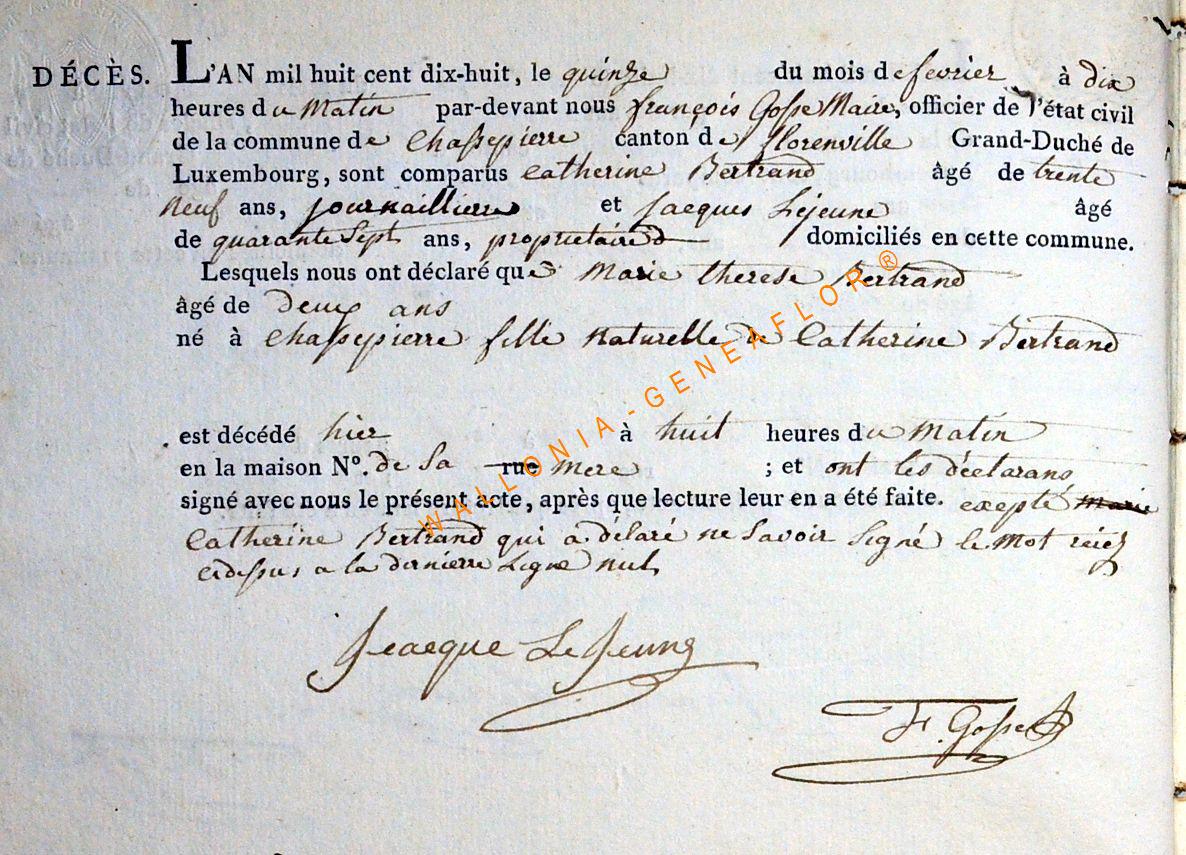 DÉCÈS. L'AN mil huit cent dix-huit, le quinze du mois de fevrier à dix
heures du Matin par-devant nous françois Gosse Maire, officier de l'état civil
de la commune de Chassepierre canton de florenville Grand-Duché de
Luxembourg, sont comparus Catherine Bertrand âgé de trente
Neuf ans, journailliere et jacques Lejeune âgé
de quarante Sept ans, proprietaire domiciliés en cette commune.
Lesquels nous ont déclaré que Marie therese Bertrand
âgé de deux ans
né à Chassepierre fille Naturelle de Catherine Bertrand
est décédé hier à huit heures du Matin
en la maison N°. de Sa rue mere ; et ont les déclarans
signé avec nous le présent acte, après que lecture leur en a été faite. exepté marie
Catherine Bertrand qui a délaré ne Savoir Signé le Mot
cidessus a la dernierre Ligne nul
Jeacque LeJeune
F. Gosse
WALLONIA-GENEAFLOR®